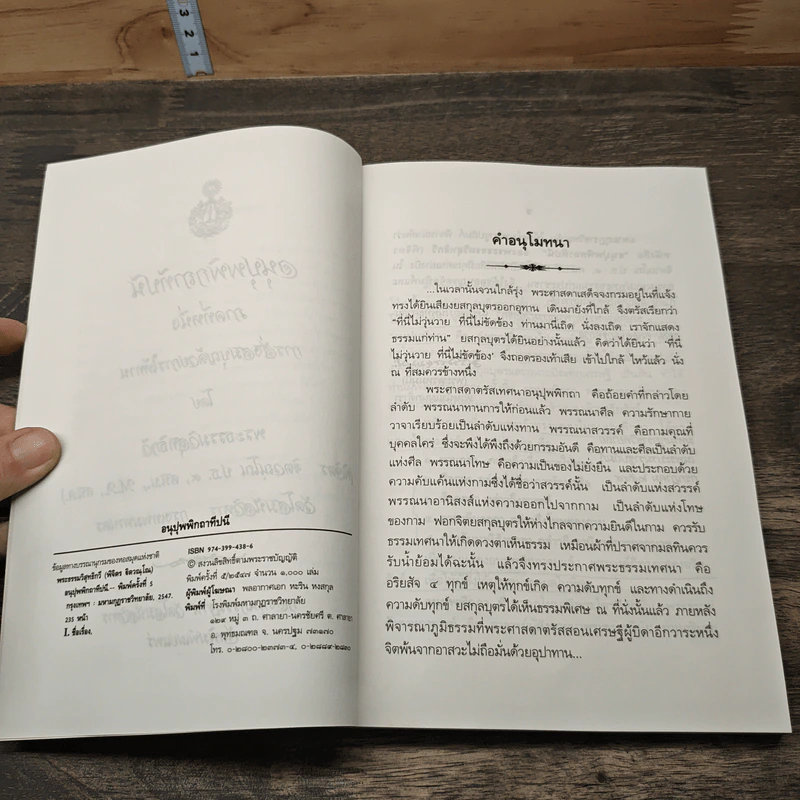 3
2
1
อนุปุพพิกถาทีปนี
ข้อมูลทางบรรณานุกรมของหอสมุดแห่งชาติ
พระธรรมวิสุทธิกวี (พิจิตร ฐิตวณฺโณ)
อนุปุพพิกถาทีปนี.-- พิมพ์ครั้งที่ 5
กรุงเทพฯ : มหามกุฏราชวิทยาลัย, 2547.
235 หน้า
I. ชื่อเรื่อง.
ISBN 974-399-438-6
© สงวนลิขสิทธิ์ตามพระราชบัญญัติ
พิมพ์ครั้งที่ ๕/๒๕๔๗ จำนวน ๑,๐๐๐ เล่ม
ผู้พิมพ์ผู้โฆษณา พลอากาศเอก หะริน หงสกุล
พิมพ์ที่ โรงพิมพ์มหามกุฏราชวิทยาลัย
๑๒๙ หมู่ ๓ ถ. ศาลายา-นครชัยศรี ต. ศาลายา
อ. พุทธมณฑล จ. นครปฐม ๗๓๑๗๐
โทร. ๐-๒๘๐๐-๒๓๗๓-๔, ๐-๒๘๘๙-๒๙๑๐
คำอนุโมทนา
...ในเวลานั้นจวนใกล้รุ่ง พระศาสดาเสด็จจงกรมอยู่ในที่แจ้ง
ทรงได้ยินเสียงยสกุลบุตรออกอุทาน เดินมายังที่ใกล้ จึงตรัสเรียกว่า
"ที่นี่ไม่วุ่นวาย ที่นี่ไม่ขัดข้อง ท่านมานี่เถิด นั่งลงเถิด เราจักแสดง
ธรรมแก่ท่าน" ยสกุลบุตรได้ยินอย่างนั้นแล้ว คิดว่าได้ยินว่า "ที่นี่
ไม่วุ่นวาย ที่นี่ไม่ขัดข้อง' จึงถอดรองเท้าเสีย เข้าไปใกล้ ไหว้แล้ว นั่ง
ณ ที่สมควรข้างหนึ่ง
พระศาสดาตรัสเทศนาอนุปุพพิกถา คือถ้อยคำที่กล่าวโดย
ลำดับ พรรณนาทานการให้ก่อนแล้ว พรรณนาศีล ความรักษากาย
วาจาเรียบร้อยเป็นลำดับแห่งทาน พรรณนาสวรรค์ คือกามคุณที่
บุคคลใคร่ ซึ่งจะพึงได้พึงถึงด้วยกรรมอันดี คือทานและศีลเป็นลำดับ
แห่งศีล พรรณนาโทษ คือความเป็นของไม่ยั่งยืน และประกอบด้วย
ความคับแค้นแห่งกามซึ่งได้ชื่อว่าสวรรค์นั้น เป็นลำดับแห่งสวรรค์
พรรณนาอานิสงส์แห่งความออกไปจากกาม เป็นลำดับแห่งโทษ
ของกาม ฟอกจิตยสกุลบุตรให้ห่างไกลจากความยินดีในกาม ควรรับ
ธรรมเทศนาให้เกิดดวงตาเห็นธรรม เหมือนผ้าที่ปราศจากมลทินควร
รับน้ำย้อมได้ฉะนั้น แล้วจึงทรงประกาศพระธรรมเทศนา คือ
อริยสัจ ๔ ทุกข์ เหตุให้ทุกข์เกิด ความดับทุกข์ และทางดำเนินถึง
ความดับทุกข์ ยสกุลบุตรได้เห็นธรรมพิเศษ ณ ที่นั่งนั้นแล้ว ภายหลัง
พิจารณาภูมิธรรมที่พระศาสดาตรัสสอนเศรษฐีผู้บิดาอีกวาระหนึ่ง
จิตพ้นจากอาสวะไม่ถือมั่นด้วยอุปาทาน...